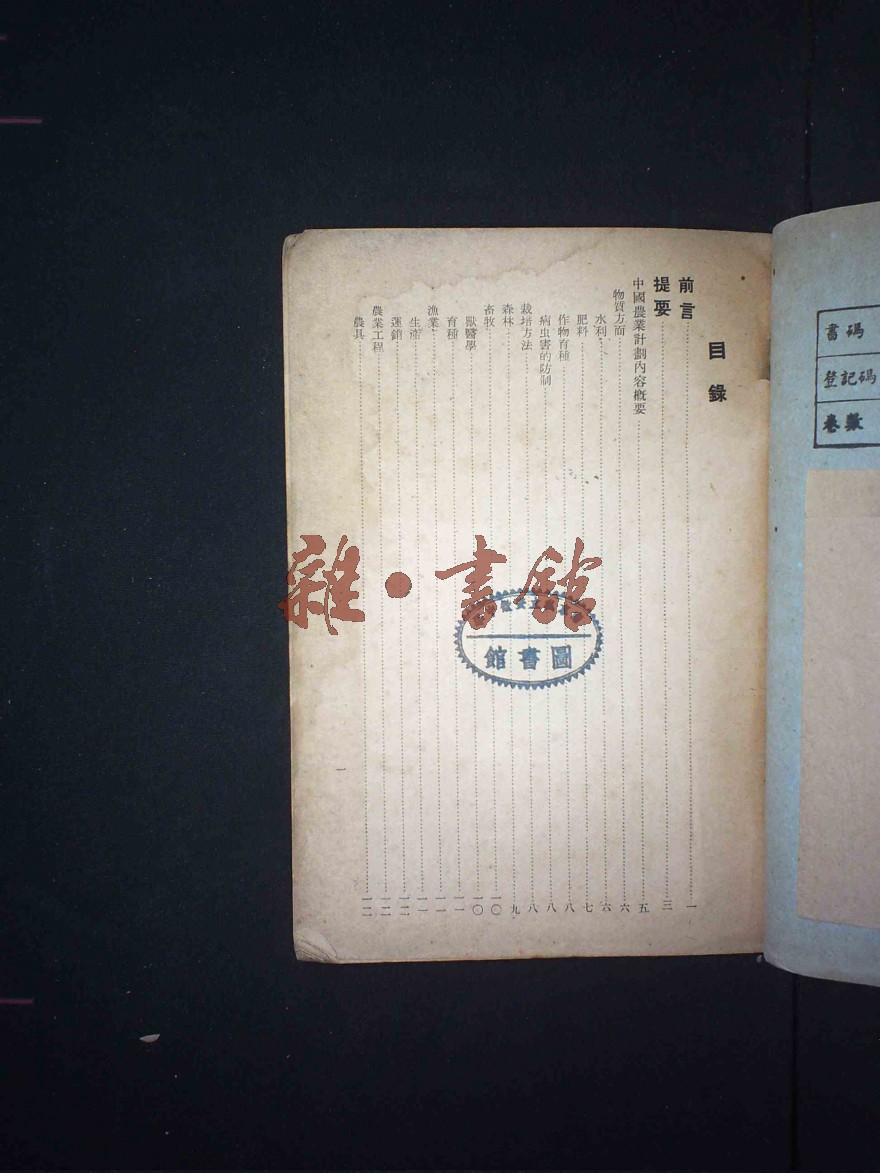 目錄
前言……一
提要……三
中國農業計劃內容概要……五
物質方面……六
水利……六
肥料……七
作物育種……八
病虫害的防制……八
栽培方法……八
森林……九
畜牧……一〇
獸醫學……一〇
育種……一一
漁業……一一
生產……一一
運銷……一二
農業工程……一二
農具……一二
一
雜·書館
圖書館
書碼
登記碼
卷數